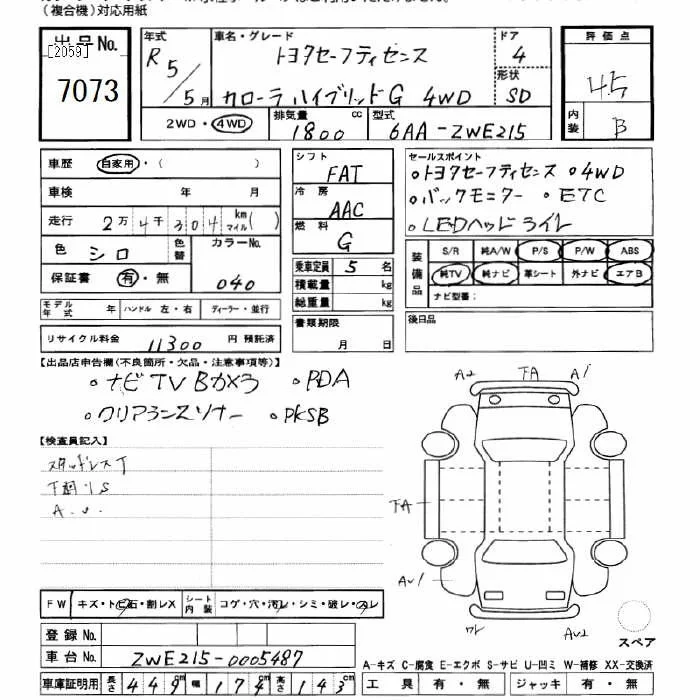 (複合機)対応用紙
出品No.
[2059]
7073
年式
R5/5月
車名・グレード
トヨタセーフティセンス
カローラハイブリッドG 4WD
ドア
4
形状
SD
2WD・4WD
排気量 1800 cc
型式 6AA-ZWE215
評価点
4.5
内装 B
車歴 自家用・( )
車検 年 月
走行 2万4千304 km マイル( )
色 シロ
色替
カラーNo. 040
保証書 有・無
モデル年式 ハンドル 左・右 ディーラー・並行
リサイクル料金 11300 円 預託済
シフト FAT
冷房 AAC
燃料 G
乗車定員 5 名
積載量 kg
総重量 kg
書類期限
月 日
セールスポイント
・トヨタセーフティセンス ・4WD
・バックモニター ・ETC
・LEDヘッドライト
装備品
S/R 純A/W P/S P/W ABS
純TV 純ナビ 革シート 外ナビ エアB
ナビ型番:
後日品
【出品店申告欄(不良箇所・欠品・注意事項等)】
・ナビTVBカメラ ・PDA
・クリアランスソナー ・PKSB
【検査員記入】
スタッドレスT
下廻りS
A.U.
A2 FA A1
FA
AU1
ワレ AU2
スペア
FW キズ・トビ石・割レX
シート内装 コゲ・穴・汚レ・シミ・破レ・スレ
登録No.
車台No. ZWE215-0005487
車庫証明用 長さ 449cm 幅 174cm 高さ 143cm
A-キズ C-腐食 E-エクボ S-サビ U-凹ミ W-補修 XX-交換済
工具 有・無 ジャッキ 有・無